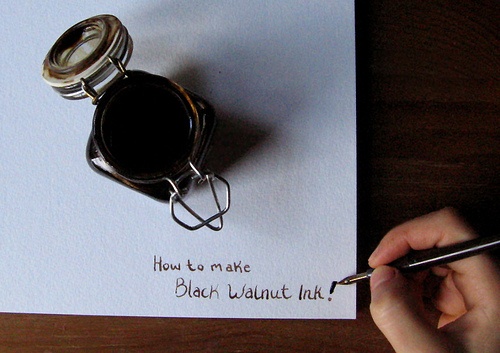 How to make
Black Walnut Ink!